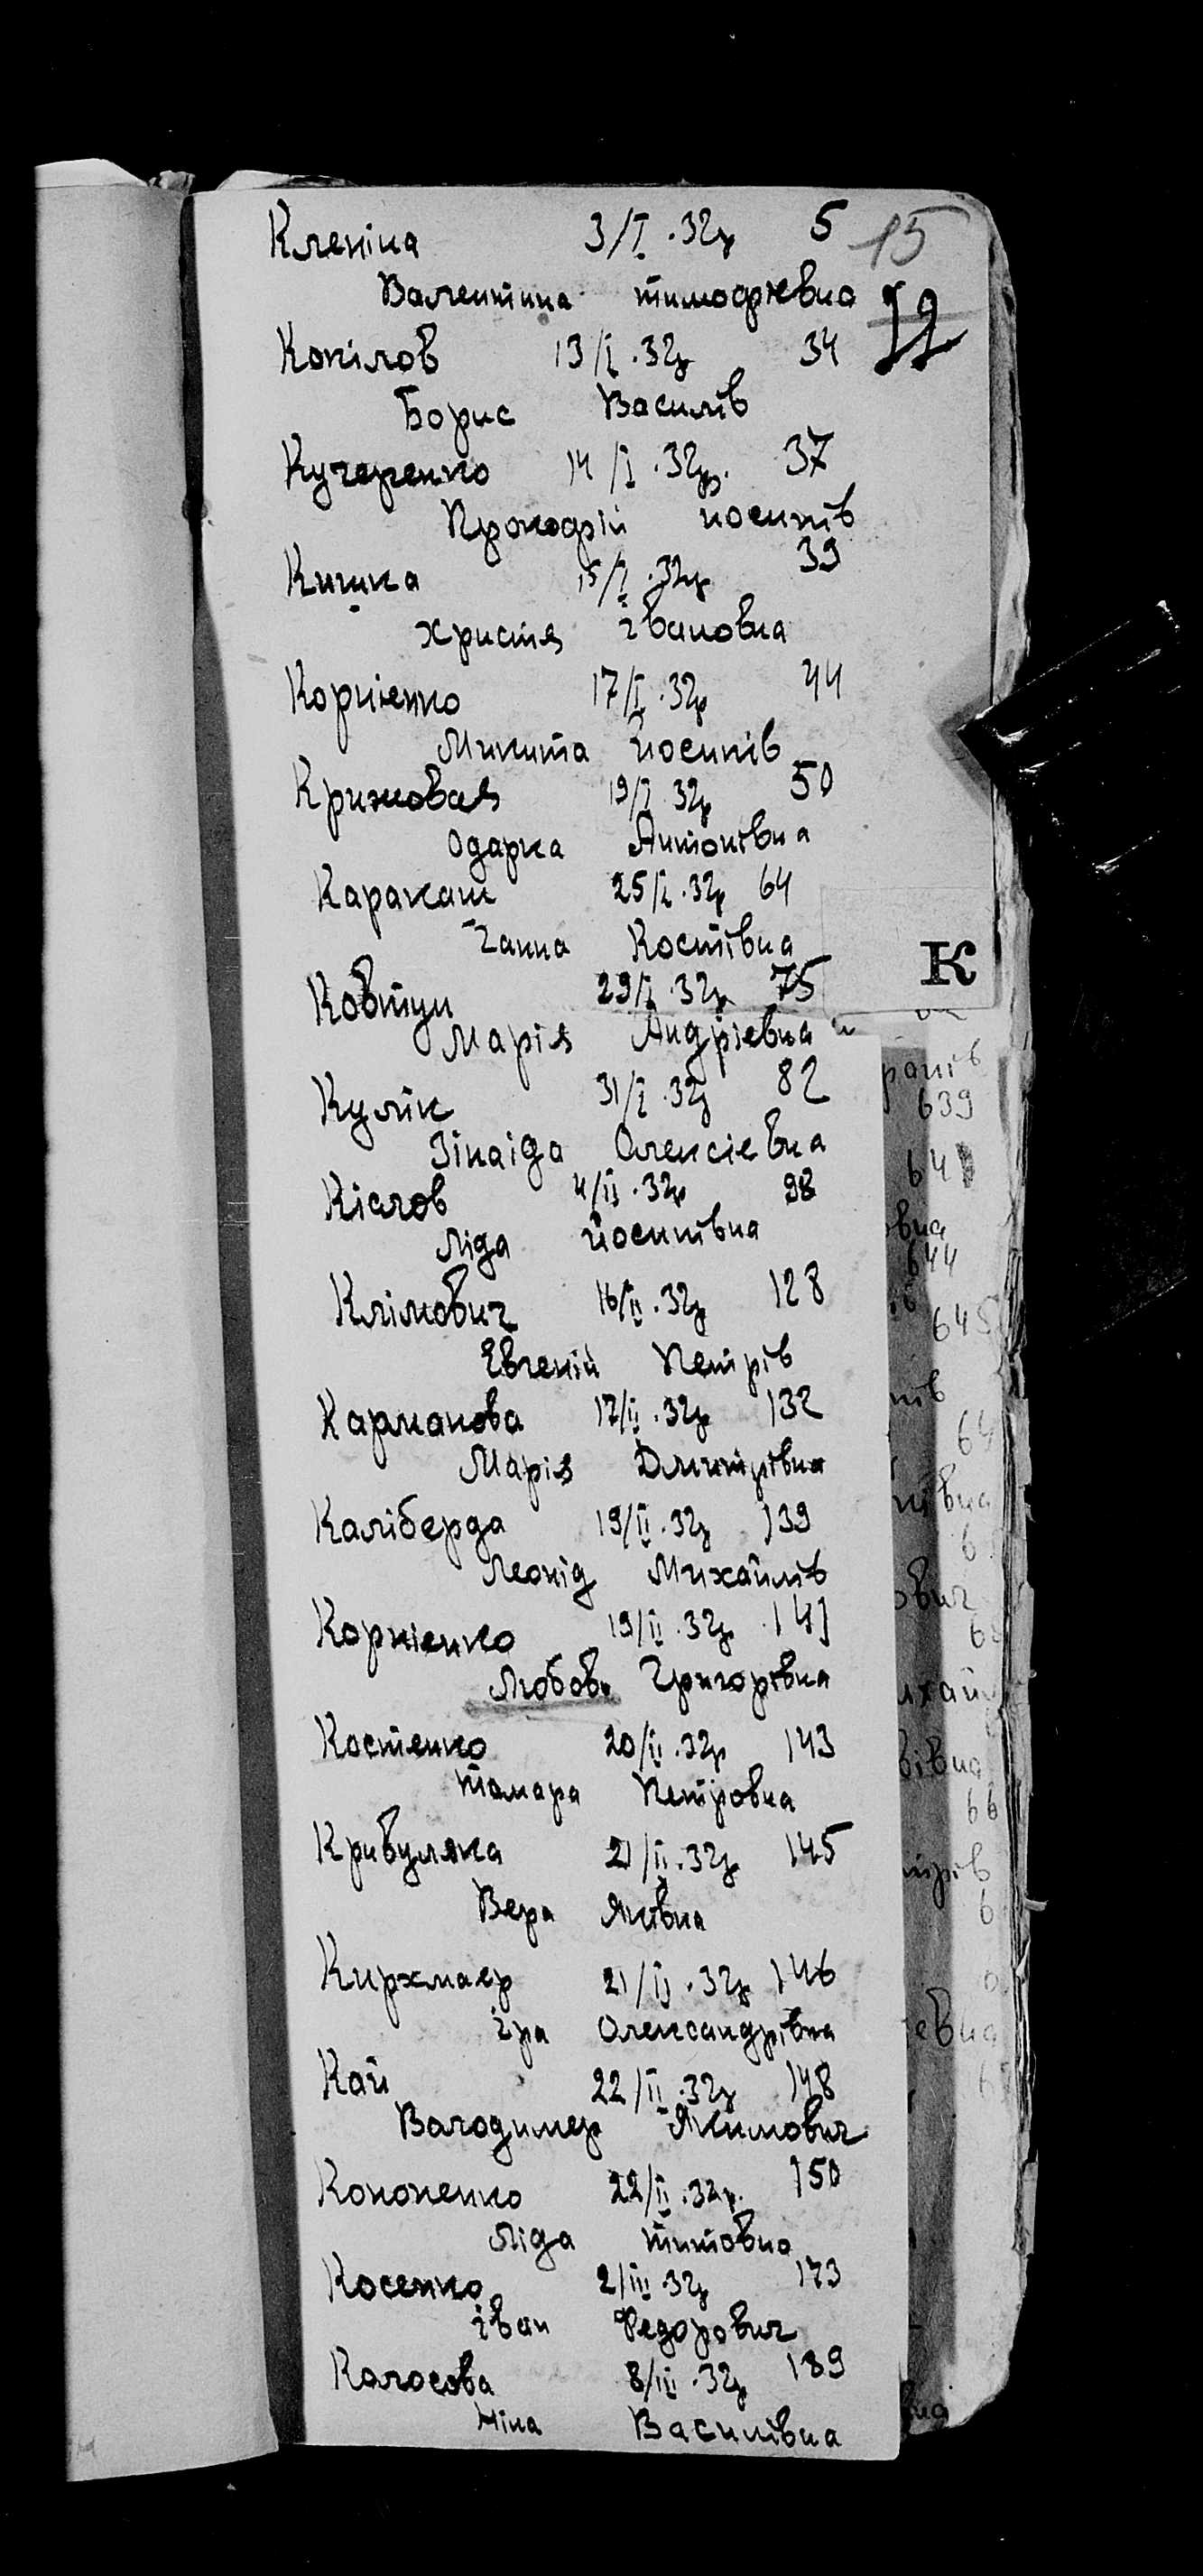 Кленіна 3/I.32р 5 15
Валентина тимофієвна
Копілов 13/I.32р 34
Борис Василів
Кучеренко 14/I.32р. 37
Прокофій йосипів
Кишка 15/I.32р 39
христя івановна
Корнієнко 17/I.32р 44
Микита йосипів
Крижовая 19/I.32р 50
Одарка Антонівна
Каракаш 25/I.32р 64
Ганна Костівна
Ковтун 29/I.32р 75
К
Марія Андрієвна
Кулік 31/I.32р 82
Зінаіда Олексієвна
Кіслов 4/II.32р 98
Ліда йосипівна
Клімович 16/II.32р 128
Евгеній Петрів
Карманова 17/II.32р 132
Марія Дмитрівна
Каліберда 19/II.32р 139
Леонід Михайлів
Корнієнко 19/II.32р 141
Любовь Григорівна
Костенко 20/II.32р 143
тамара Петровна
Кривуляка 21/II.32р 145
Вера Яківна
Кирхмаєр 21/II.32р 146
іра Олександрівна
Кай 22/II.32р 148
Володимер Якимович
Кононенко 22/II.32р. 150
Ліда титовна
Косенко 2/III.32р 173
іван Федорович
Колосова 8/III.32р 189
Ніна Василівна